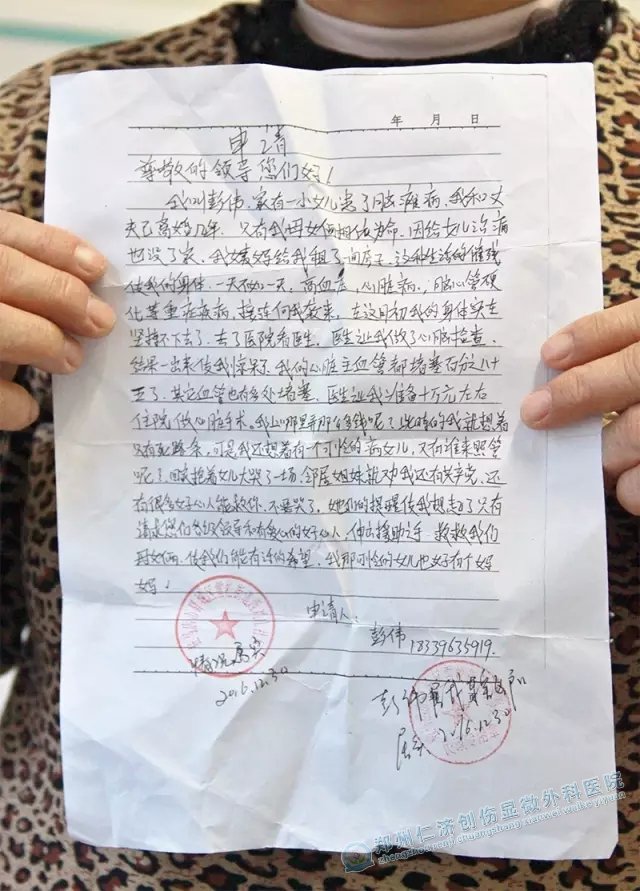 年 月 日
申请
尊敬的领导您们好！
我叫彭伟，家有一小女儿患了脑瘫病，我和丈
夫已离婚几年，只有我母女俩相依为命，因给女儿治病
也没了家，我娘给我租了一间房子，这种生活的摧残
使我的身体一天不如一天，高血压，心脏病，脑心管硬
化等重症疾病，接连向我袭来，在这月初我的身体实在
坚持不下去了，去了医院看医生，医生让我做了心脏检查，
结果一出来使我惊呆了，我的心脏主血管都堵塞百分八十
至了，其它血管也有多处堵塞，医生让我准备十万元左右
住院做心脏手术，我上哪里弄那么多钱呢？此时的我就想着
只有死路一条，可是我还想着有一个可怜的病女儿，又有谁来照管
呢？回来抱着女儿大哭了一场，邻居姐妹就劝我还有共产党，还
有很多好心人能救你，不要哭了，她们的提醒使我想起了只有
请求您们各级领导和有爱心的好心人，伸出援助之手，救救我们
母女俩，使我们能有活的希望，我那可怜的女儿也好有个妈
妈！
申请人
彭伟 18339635919.
情况属实
2016.12.30
彭伟
属实 2016.12.30
郑州仁济创伤显微外科医院
zhengzhourenji chuangshang xianwei waike yiyuan